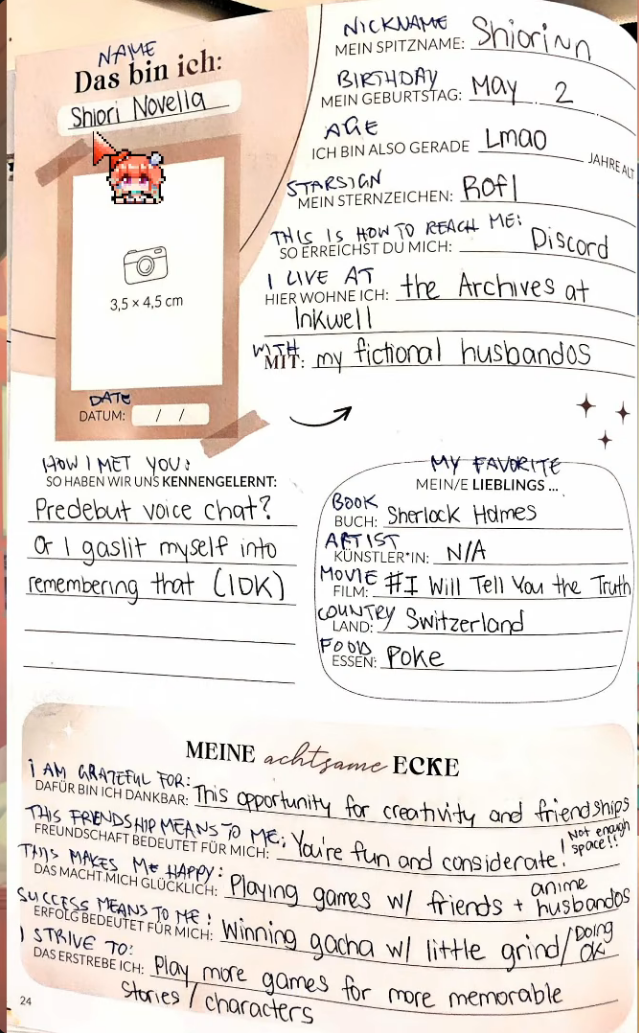 NAME
Das bin ich:
Shiori Novella
3,5 x 4,5 cm
DATE
DATUM: / /
NICKNAME
MEIN SPITZNAME: Shiorinn
BIRTHDAY
MEIN GEBURTSTAG: May 2
AGE
ICH BIN ALSO GERADE Lmao JAHRE ALT
STARSIGN
MEIN STERNZEICHEN: Rofl
THIS IS HOW TO REACH ME:
SO ERREICHST DU MICH: Discord
I LIVE AT
HIER WOHNE ICH: the Archives at
Inkwell
WITH
MIT: my fictional husbandos
HOW I MET YOU:
SO HABEN WIR UNS KENNENGELERNT:
Predebut voice chat?
Or I gaslit myself into
remembering that (IDK)
MY FAVORITE
MEIN/E LIEBLINGS ...
BOOK
BUCH: Sherlock Holmes
ARTIST
KÜNSTLER*IN: N/A
MOVIE
FILM: #I Will Tell You the Truth
COUNTRY
LAND: Switzerland
FOOD
ESSEN: Poke
MEINE achtsame ECKE
I AM GRATEFUL FOR:
DAFÜR BIN ICH DANKBAR: This opportunity for creativity and friendships
THIS FRIENDSHIP MEANS TO ME:
FREUNDSCHAFT BEDEUTET FÜR MICH: You're fun and considerate! Not enough
space!!
THIS MAKES ME HAPPY:
DAS MACHT MICH GLÜCKLICH: Playing games w/ friends + anime
husbandos
SUCCESS MEANS TO ME:
ERFOLG BEDEUTET FÜR MICH: Winning gacha w/ little grind/Doing
OK
I STRIVE TO:
DAS ERSTREBE ICH: Play more games for more memorable
stories / characters
24